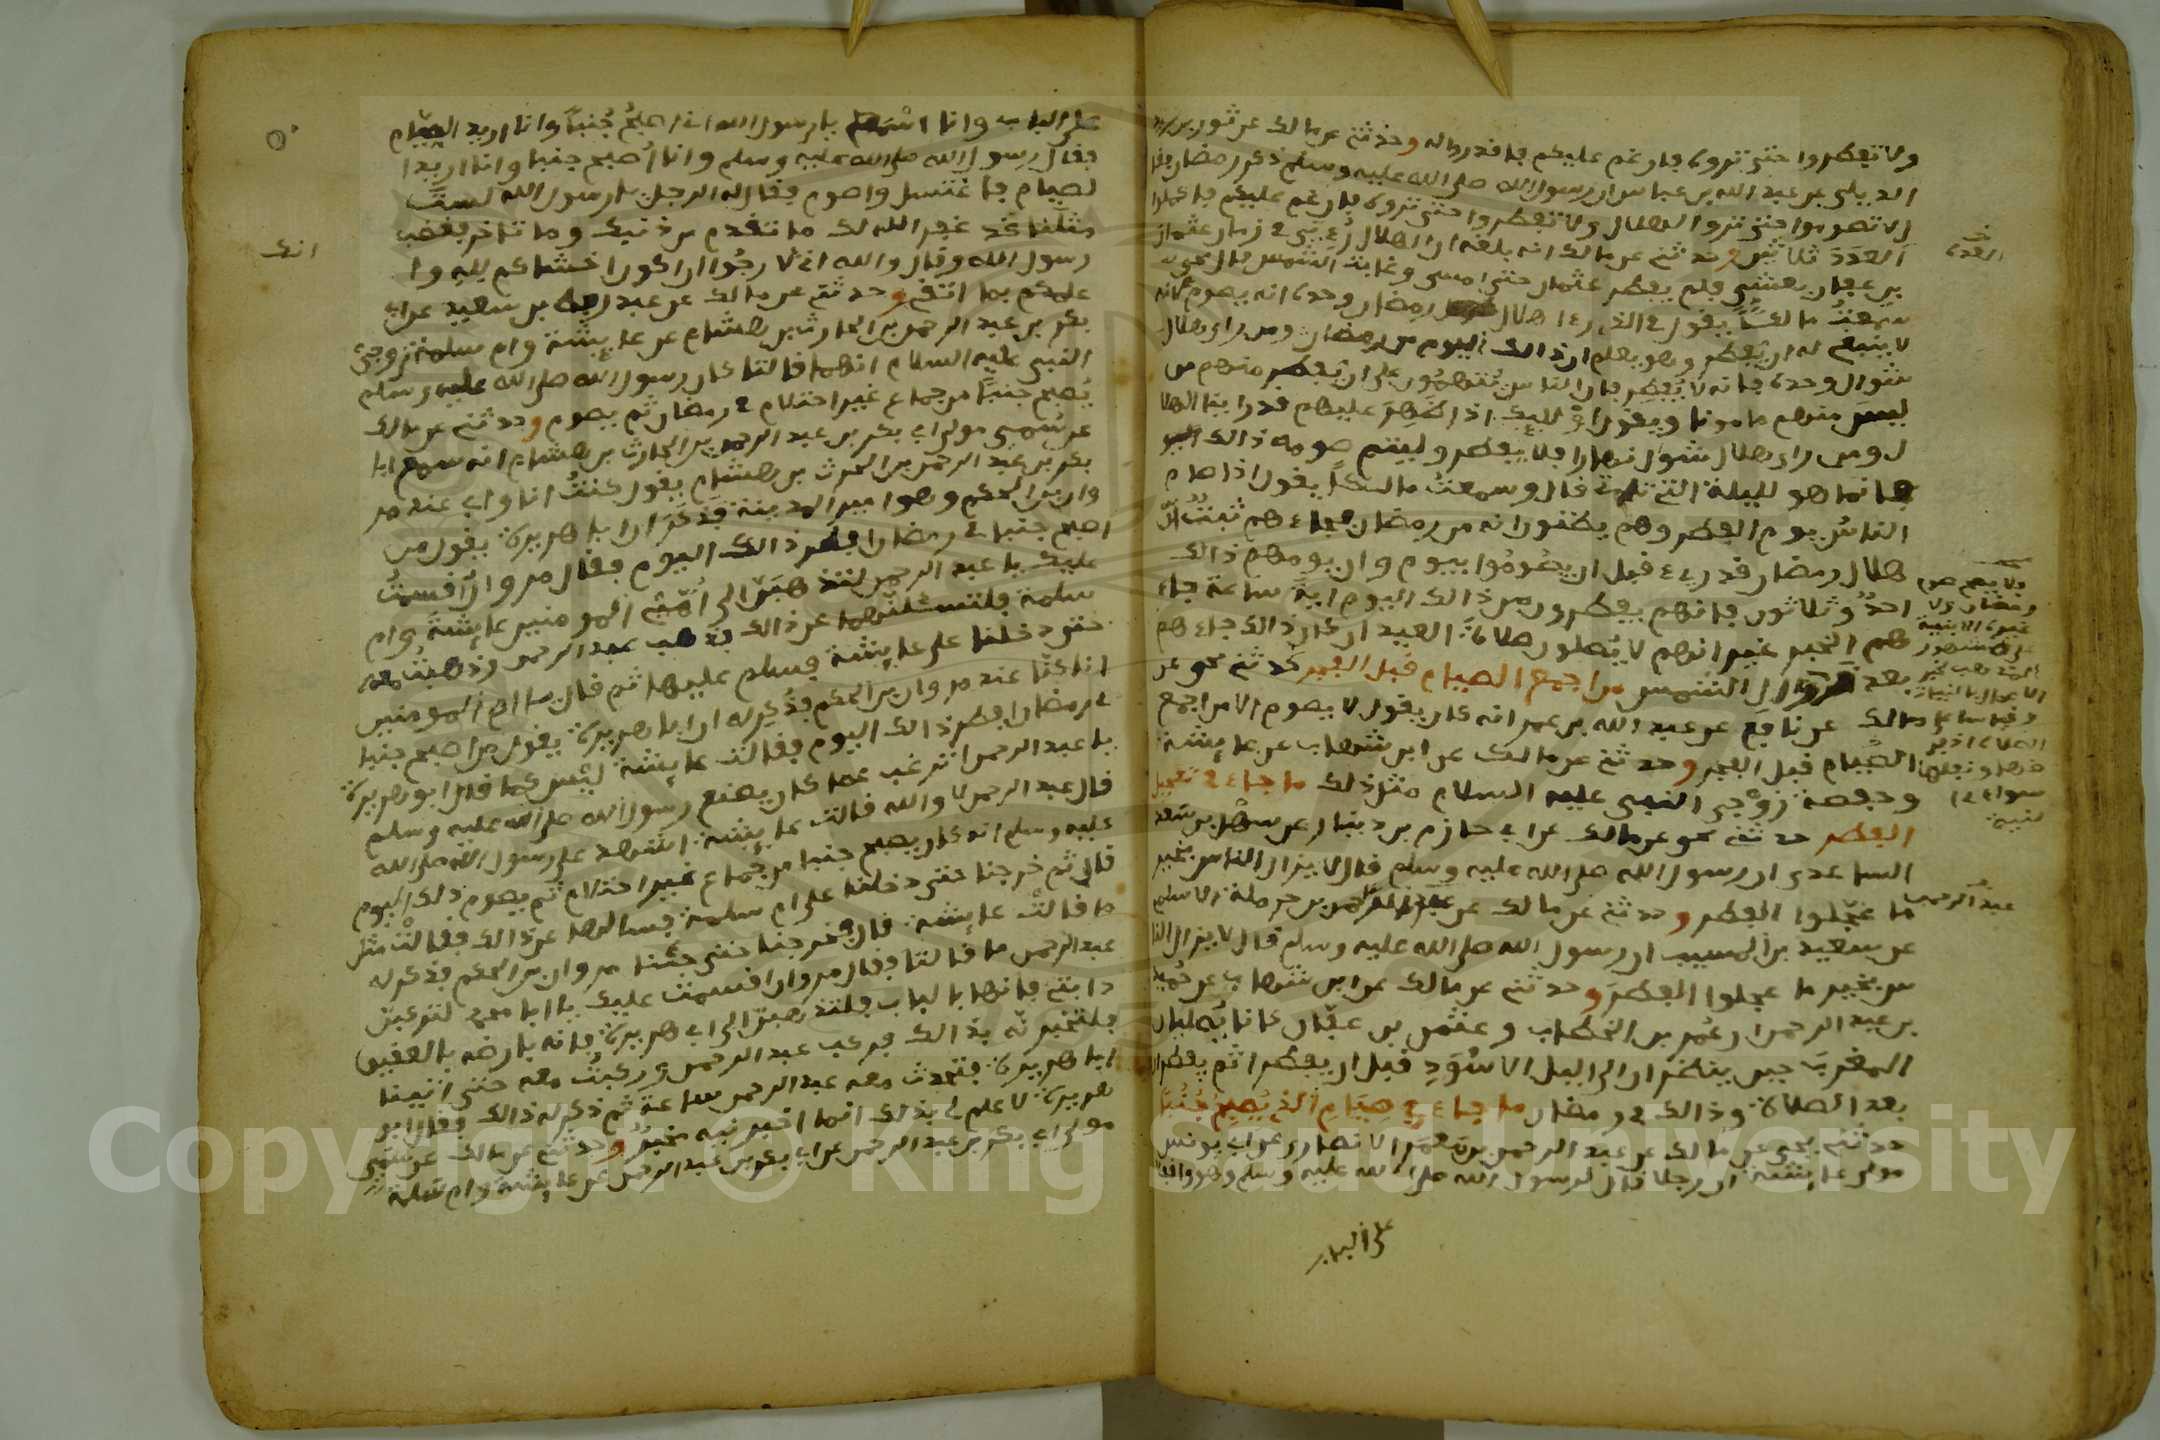 ولا تفطروا حتى تروه فان غم عليكم فاقدروا له وحدثني عن مالك عن ثور بن زيد
الديلي عن عبد الله بن عباس ان رسول الله صلى الله عليه وسلم ذكر رمضان فقا
ل لا تصوموا حتى تروا الهلال ولا تفطروا حتى تروه فان غم عليكم فاكملوا
العدد ثلاثين وحدثني عن مالك انه بلغه ان الهلال رءي في زمان عثمان
بن عفان بعشي فلم يفطر عثمان حتى امسى وغابت الشمس قال يحيى
سمعت مالكا يقول في الذي رءا هلال رمضان وحده انه يصوم لانه
لا ينبغي له ان يفطر وهو يعلم ان ذالك اليوم من رمضان ومن راى هلال
شوال وحده فانه لا يفطر فان الناس يتهمون على ان يفطر منهم من
ليس منهم مامونا ويقول اولايك اذا ظهر عليهم قد راينا الهلا
ل ومن راى هلال شوال نهارا فلا يفطر وليتم صومه ذالك اليو
فانما هو لليلة التي تاتي قال وسمعت مالكا يقول اذا صام
الناس يوم الفطر وهم يظنون انه من رمضان فجاءهم ثبت ان
هلال رمضان قد رءي قبل ان يصوموا بيوم وان يومهم ذالك
احد وثلاثون فانهم يفطرون من ذالك اليوم اية ساعة جاء
هم الخبر غير انهم لا يصلون صلاة العيد ان كان ذالك جاءهم
بعد زوال الشمس من اجمع الصيام قبل الفجر حدثني يحيى عن
مالك عن نافع عن عبد الله بن عمر انه كان يقول لا يصوم الا من اجمع
الصيام قبل الفجر وحدثني عن مالك عن ابن شهاب عن عايشة
وحفصة زوجي النبي عليه السلام مثل ذلك ما جاء في تعجيل
الفطر حدثني يحيى عن مالك عن ابي حازم بن دينار عن سهل بن سعد
الساعدي ان رسول الله صلى الله عليه وسلم قال لا يزال الناس بخير
ما عجلوا الفطر وحدثني عن مالك عن بن حرملة الاسلم
عن سعيد بن المسيب ان رسول الله صلى الله عليه وسلم قال لا يزال النا
س بخير ما عجلوا الفطر وحدثني عن مالك عن ابن شهاب عن حميد
بن عبد الرحمن ان عمر بن الخطاب وعثمن بن عفان كانا يصليان
المغرب حين ينظران الى الليل الاسود قبل ان يفطرا ثم يفطران
بعد الصلاة وذالك في رمضان ما جاء في صيام الذي يصبح جنبا
حدثني يحيى عن مالك عن عبد الرحمن بن معمر الانصاري عن ابي يونس
مولى عايشة ان رجلا قال لرسول الله صلى الله عليه وسلم وهو واقف
على الباب
العدة
عبد الرحمن
على الباب وانا اسمع يا رسول الله اني اصبح جنبا وانا اريد الصيام
فقال رسول الله صلى الله عليه وسلم وانا اصبح جنبا وانا اريد ا
لصيام فاغتسل واصوم فقال له الرجل يا رسول الله لست
مثلنا قد غفر الله لك ما تقدم من ذنبك وما تاخر فغضب
رسول الله وقال والله اني لارجوا ان اكون اخشاكم لله وا
علمكم بما اتقي وحدثني عن مالك عن عبد ربه بن سعيد عن ابي
بكر بن عبد الرحمن بن الحارث بن هشام عن عايشة وام سلمة زوجي
النبي عليه السلام انهما قالتا كان رسول الله صلى الله عليه وسلم
يصبح جنبا من جماع غير احتلام في رمضان ثم يصوم وحدثني عن مالك
عن سمي مولى ابي بكر بن عبد الرحمن بن الحارث بن هشام انه سمع ابا
بكر بن عبد الرحمن بن الحرث بن هشام يقول كنت انا وابي عند مر
وان بن الحكم وهو امير المدينة فذكر ان ابا هريرة يقول من
اصبح جنبا في رمضان افطر ذالك اليوم فقال مروان اقسمت
عليك يا عبد الرحمن لتذهبن الى امي المومنين عايشة وام
سلمة فلتسئلنهما عن ذالك فذهب عبد الرحمن وذهبت معه
حتى دخلنا على عايشة فسلم عليها ثم قال يا ام المومنين
انا كنا عند مروان بن الحكم فذكر له ان ابا هريرة يقول من اصبح جنبا
في رمضان افطر ذالك اليوم فقالت عايشة ليس كما قال ابو هريرة
يا عبد الرحمن اترغب عما كان يصنع رسول الله صلى الله عليه وسلم
قال عبد الرحمن لا والله قالت عايشة اشهد على رسول الله صلى الله
عليه وسلم انه كان يصبح جنبا من جماع غير احتلام ثم يصوم ذلك اليوم
قال ثم خرجنا حتى دخلنا على ام سلمة فسالها عن ذالك فقالت مثل
ما قالت عايشة قال فخرجنا حتى جئنا مروان بن الحكم فذكر له
عبد الرحمن ما قالتا فقال مروان اقسمت عليك يا ابا محمد لتركبن
دابتي فانها بالباب فلتذهبن الى ابي هريرة فانه بارضه بالعقيق
فلتخبرنه بذالك فركب عبد الرحمن وركبت معه حتى اتينا
ابا هريرة فتحدث معه عبد الرحمن ساعة ثم ذكر له ذالك فقال ابو
هريرة لا علم لي بذلك انما اخبرنيه مخبر وحدثني عن مالك عن سمي
مولى ابي بكر بن عبد الرحمن عن ابي بكر بن عبد الرحمن عن عايشة وام سلمة
انك
Copyright © King Saud University